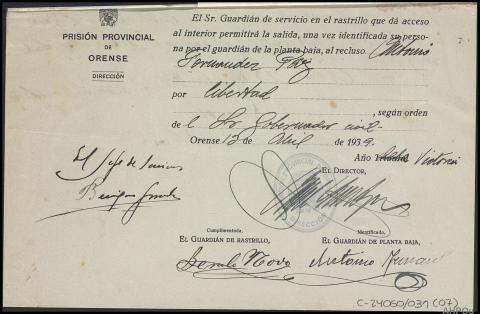 PRISIÓN PROVINCIAL
DE
ORENSE
DIRECCIÓN
El Sr. Guardián de servicio en el rastrillo que dá acceso
al interior permitirá la salida, una vez identificada su perso-
na por el guardián de la planta baja, al recluso Antonio
Fernandez
por libertad
, según orden
de l Sr Gobernador civil
Orense 13 de Abril de 1939.
Año de la Victoria
EL DIRECTOR,
El Jefe de Servicios
PRISION PROVINCIAL
DIRECCION
Cumplimentada,
EL GUARDIÁN DE RASTRILLO,
Identificado,
EL GUARDIÁN DE PLANTA BAJA,
Novo
Antonio
C-24060/031 (07)
AHPOu